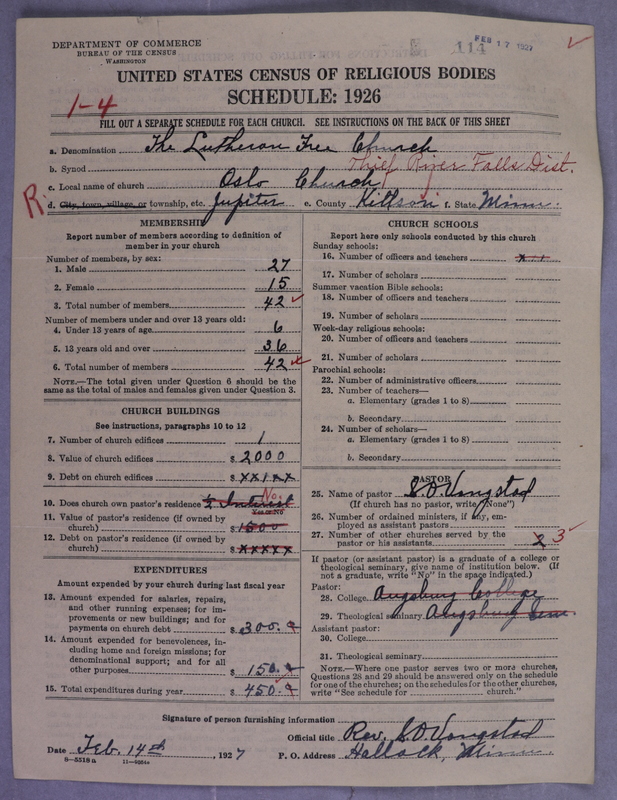 DEPARTMENT OF COMMERCE
BUREAU OF THE CENSUS
WASHINGTON
114
FEB 17 1927
UNITED STATES CENSUS OF RELIGIOUS BODIES
SCHEDULE: 1926
1-4
FILL OUT A SEPARATE SCHEDULE FOR EACH CHURCH. SEE INSTRUCTIONS ON THE BACK OF THIS SHEET
a. Denomination The Lutheran Free Church
b. Synod Thief River Falls Dist.
c. Local name of church Oslo Church
R.
d. City, town, village, or township, etc. Jupiter e. County Kittson f. State Minn.
MEMBERSHIP
Report number of members according to definition of
member in your church
Number of members, by sex:
1. Male 27
2. Female 15
3. Total number of members 42
Number of members under and over 13 years old:
4. Under 13 years of age 6
5. 13 years old and over 36
6. Total number of members 42
NOTE.—The total given under Question 6 should be the
same as the total of males and females given under Question 3.
CHURCH BUILDINGS
See instructions, paragraphs 10 to 12
7. Number of church edifices 1
8. Value of church edifices $ 2000
9. Debt on church edifices $ xxxxx
10. Does church own pastor's residence ½ Interest No.
Yes or No
11. Value of pastor's residence (if owned by
church) $ 1500
12. Debt on pastor's residence (if owned by
church) $ xxxxx
EXPENDITURES
Amount expended by your church during last fiscal year
13. Amount expended for salaries, repairs,
and other running expenses; for im-
provements or new buildings; and for
payments on church debt $ 300.
14. Amount expended for benevolences, in-
cluding home and foreign missions; for
denominational support; and for all
other purposes $ 150.
15. Total expenditures during year $ 450.
CHURCH SCHOOLS
Report here only schools conducted by this church
Sunday schools:
16. Number of officers and teachers
17. Number of scholars
Summer vacation Bible schools:
18. Number of officers and teachers
19. Number of scholars
Week-day religious schools:
20. Number of officers and teachers
21. Number of scholars
Parochial schools:
22. Number of administrative officers
23. Number of teachers—
a. Elementary (grades 1 to 8)
b. Secondary
24. Number of scholars—
a. Elementary (grades 1 to 8)
b. Secondary
PASTOR
25. Name of pastor S.O. Vangstad
(If church has no pastor, write "None")
26. Number of ordained ministers, if any, em-
ployed as assistant pastors
27. Number of other churches served by the
pastor or his assistants 2 3
If pastor (or assistant pastor) is a graduate of a college or
theological seminary, give name of institution below. (If
not a graduate, write "No" in the space indicated.)
Pastor:
28. College Augsburg College
29. Theological seminary Augsburg Sem.
Assistant pastor:
30. College
31. Theological seminary
NOTE.—Where one pastor serves two or more churches,
Questions 28 and 29 should be answered only on the schedule
for one of the churches; on the schedules for the other churches,
write "See schedule for church."
Signature of person furnishing information
Official title Rev. S.O. Vangstad
Date Feb. 14th, 1927 P. O. Address Hallock, Minn.
8—5518a 11—9264a